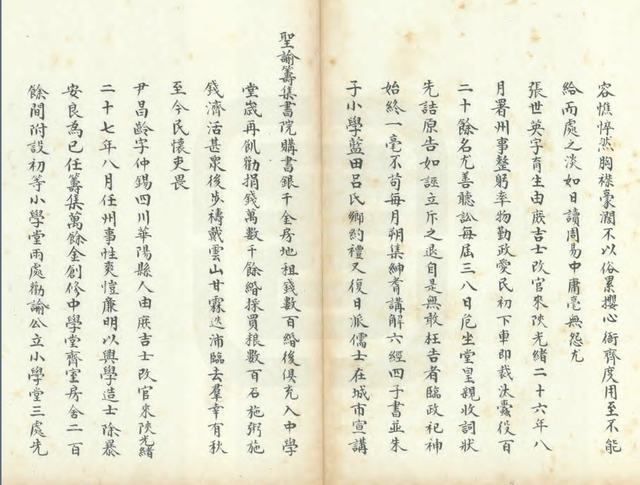 容憔悴然胸襟豪濶不以俗累攖心衙齋度用至不能
給而處之淡如日讀周易中庸毫無怨尤
張世英字育生由庶吉士改官來陝光緒二十六年八
月署州事整躬率物勤政愛民初下車即裁汰蠹役百
二十餘名尤善聽訟每屆三八日危坐堂皇親收詞狀
先詰原告如誣立斥之退自是無敢枉告者臨政祀神
始終一毫不苟每月朔集紳耆講解六經四子書並朱
子小學藍田呂氏鄉約禮又復日派儒士在城市宣講
聖諭籌集書院購書銀千金房地租錢數百緡後俱充入中學
堂歲再飢勸捐錢萬數千餘緡採買粮數百石施粥施
錢濟活甚衆後步禱戴雲山甘霖迭沛臨去羣幸有秋
至今民懷吏畏
尹昌齡字仲錫四川華陽縣人由庶吉士改官來陝光緒
二十七年八月任州事性爽愷廉明以興學造士除暴
安良為己任籌集萬餘金創修中學堂齋室房舍二百
餘間附設初等小學堂兩處勸諭公立小學堂三處先